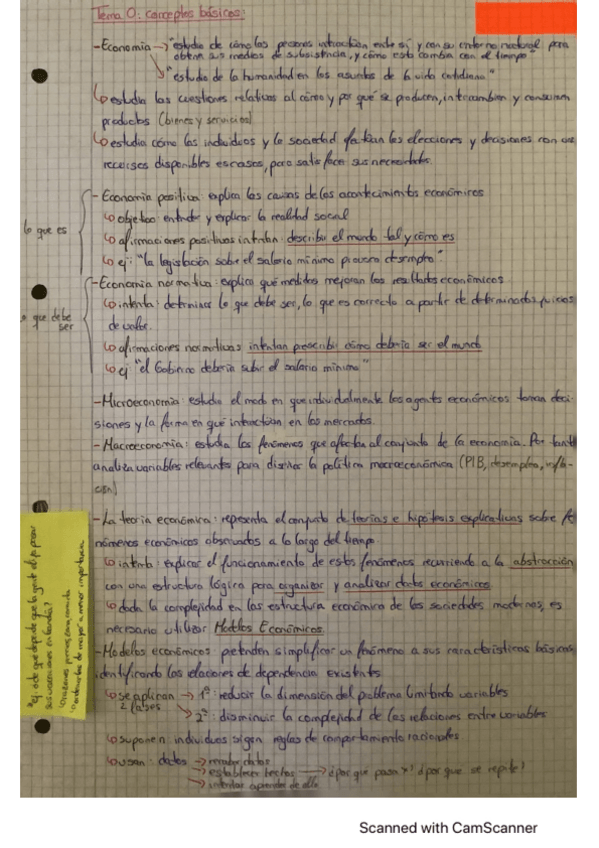 Tema 0: conceptos básicos:
-Economía → "estudio de cómo las personas interactúan entre sí y con su entorno natural para
obtener sus medios de subsistencia, y cómo esto cambia con el tiempo"
"estudio de la humanidad en los asuntos de la vida cotidiana"
↳ estudia las cuestiones relativas al cómo y por qué se producen, intercambian y consumen
productos (bienes y servicios)
↳ estudia cómo los individuos y la sociedad efectúan las elecciones y decisiones con
recursos disponibles escasos, para satisfacer sus necesidades.
lo que es
-Economía positiva: explica las causas de los acontecimientos económicos
↳ objetivo: entender y explicar la realidad social
↳ afirmaciones positivas intentan: describir el mundo tal y como es
↳ ej: "la legislación sobre el salario mínimo provoca desempleo"
que debe
ser
-Economía normativa: explica qué medidas mejoran los resultados económicos.
↳ intenta: determinar lo que debe ser, lo que es correcto a partir de determinados juicios
de valor.
↳ afirmaciones normativas intentan prescribir cómo debería ser el mundo
↳ ej "el Gobierno debería subir el salario mínimo"
-Microeconomía: estudia el modo en que individualmente los agentes económicos toman deci-
siones y la forma en que interactúan en los mercados.
-Macroeconomía: estudia los fenómenos que afectan al conjunto de la economía. Por tanto
analiza variables relevantes para diseñar la política macroeconómica (PIB, desempleo, infla-
ción)
-La teoría económica: representa el conjunto de teorías e hipótesis explicativas sobre fe
nómenos económicos observados a lo largo del tiempo.
↳ intenta: explicar el funcionamiento de estos fenómenos recurriendo a la abstracción
con una estructura lógica para organizar y analizar datos económicos.
↳ dada la complejidad en las estructura económica de las sociedades modernas, es
necesario utilizar Modelos Económicos.
-Modelos económicos: pretenden simplificar un fenómeno a sus características básicas,
identificando las relaciones de dependencia existentes
↳ se aplican → 1º: reducir la dimensión del problema limitando variables
2 fases → 2º: disminuir la complejidad de las relaciones entre variables
↳ suponen individuos siguen reglas de comportamiento racionales
↳ usan: datos → datos
→ establecer hechos → ¿por qué pasa x? ¿por que se repite?
→ intentar aprender de ello
*ej: ¿de que depende que la gente
sus vacaciones en
de mayor a menor importancia
Scanned with CamScanner